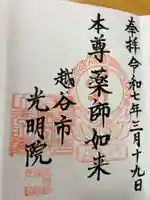 奉拝 令和七年三月十九日
本尊薬師如来
越谷市
光明院